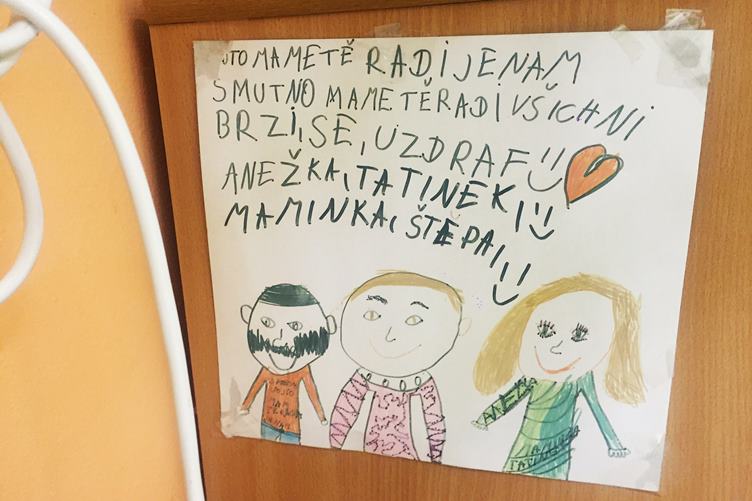 OTO MAMETĚ RADI JENAM
SMUTNO MAMETĚRADI VŠICHNI
BRZI, SE, UZDRAF
ANEŽKA, TATINEK,
MAMINKA, ŠTĚPA,